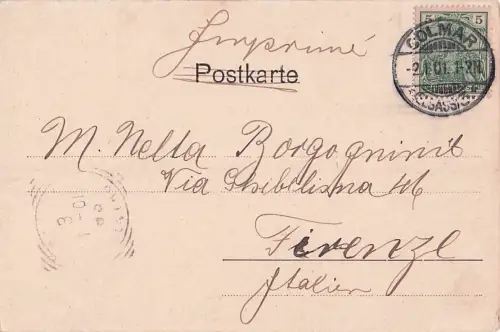 Imprimé
Postkarte
5 5
COLMAR
-2.1.01. 1-2N
(ELSASS)
M. Nella Borgognini
Via Ghibellina 46
Firenze
Italien